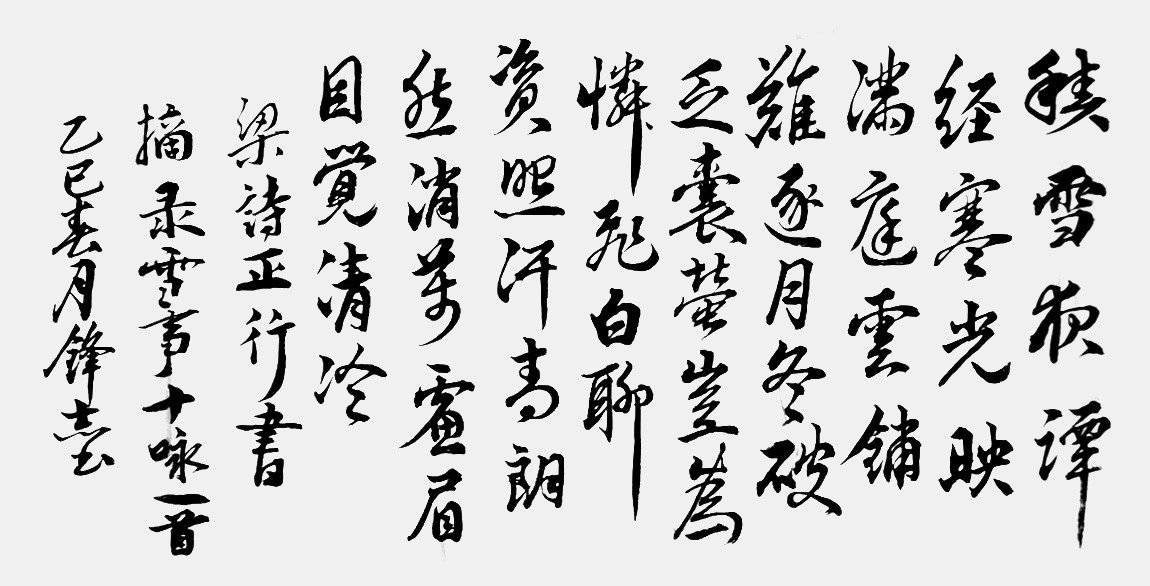 積雪夜譚
经寒光映
滿庭雲鋪
難逐月冬破
乏囊螢豈為
憐飛白聊
資照汗青朗
然消萬慮眉
目覺清冷
梁詩正行書
摘录雪事十咏一首
乙巳春月鋒志书